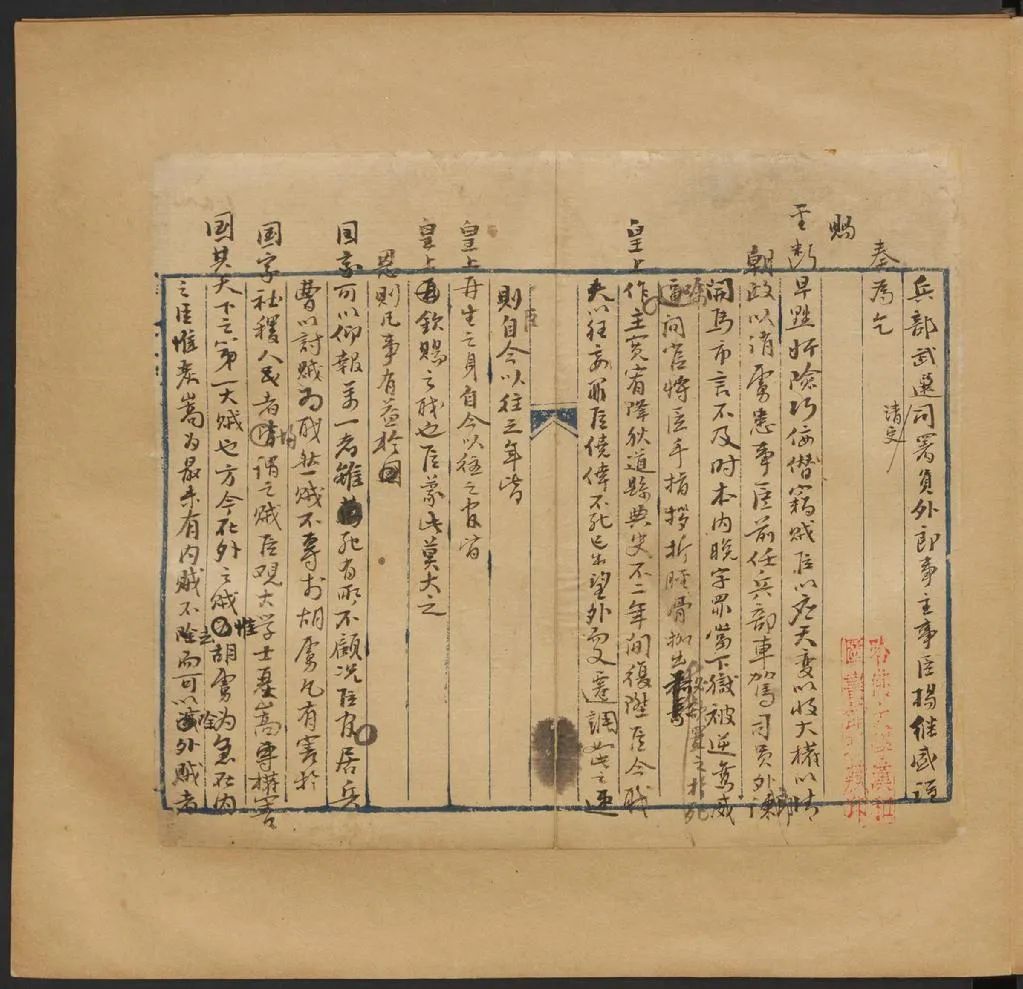 兵部武選司清吏署員外郎事主事臣楊继盛謹
奏為乞
賜
圣断早誅奸險巧佞僭竊賊臣以应天变以收大權以清
朝政以消虜患事臣前任兵部車駕司員外郎諫
開馬市言不及时本内脱字罪當下獄被逆鸞威
囑問官将臣手指拶折脛骨夾出必欲置之於死
皇上作主寛宥降狄道縣典史不二年間復陞臣今职
夫以狂妄罪臣僥倖不死已出望外而又遷調如此之速
則自今以往之年皆
皇上再生之身自今以往之官皆
皇上再欽賜之职也臣蒙此莫大之
恩則凡事有益於國
国家可以仰報萬一者雖死有所不顧况臣官居兵
曹以討賊為职然賊不專於胡虜凡有害於
国家社稷人民者均謂之賊臣观大学士嚴嵩專權害
国其天下之第一大賊也方今在外之賊惟胡虜為急在内
之臣惟嚴嵩為最未有内賊不去而可以除外賊者